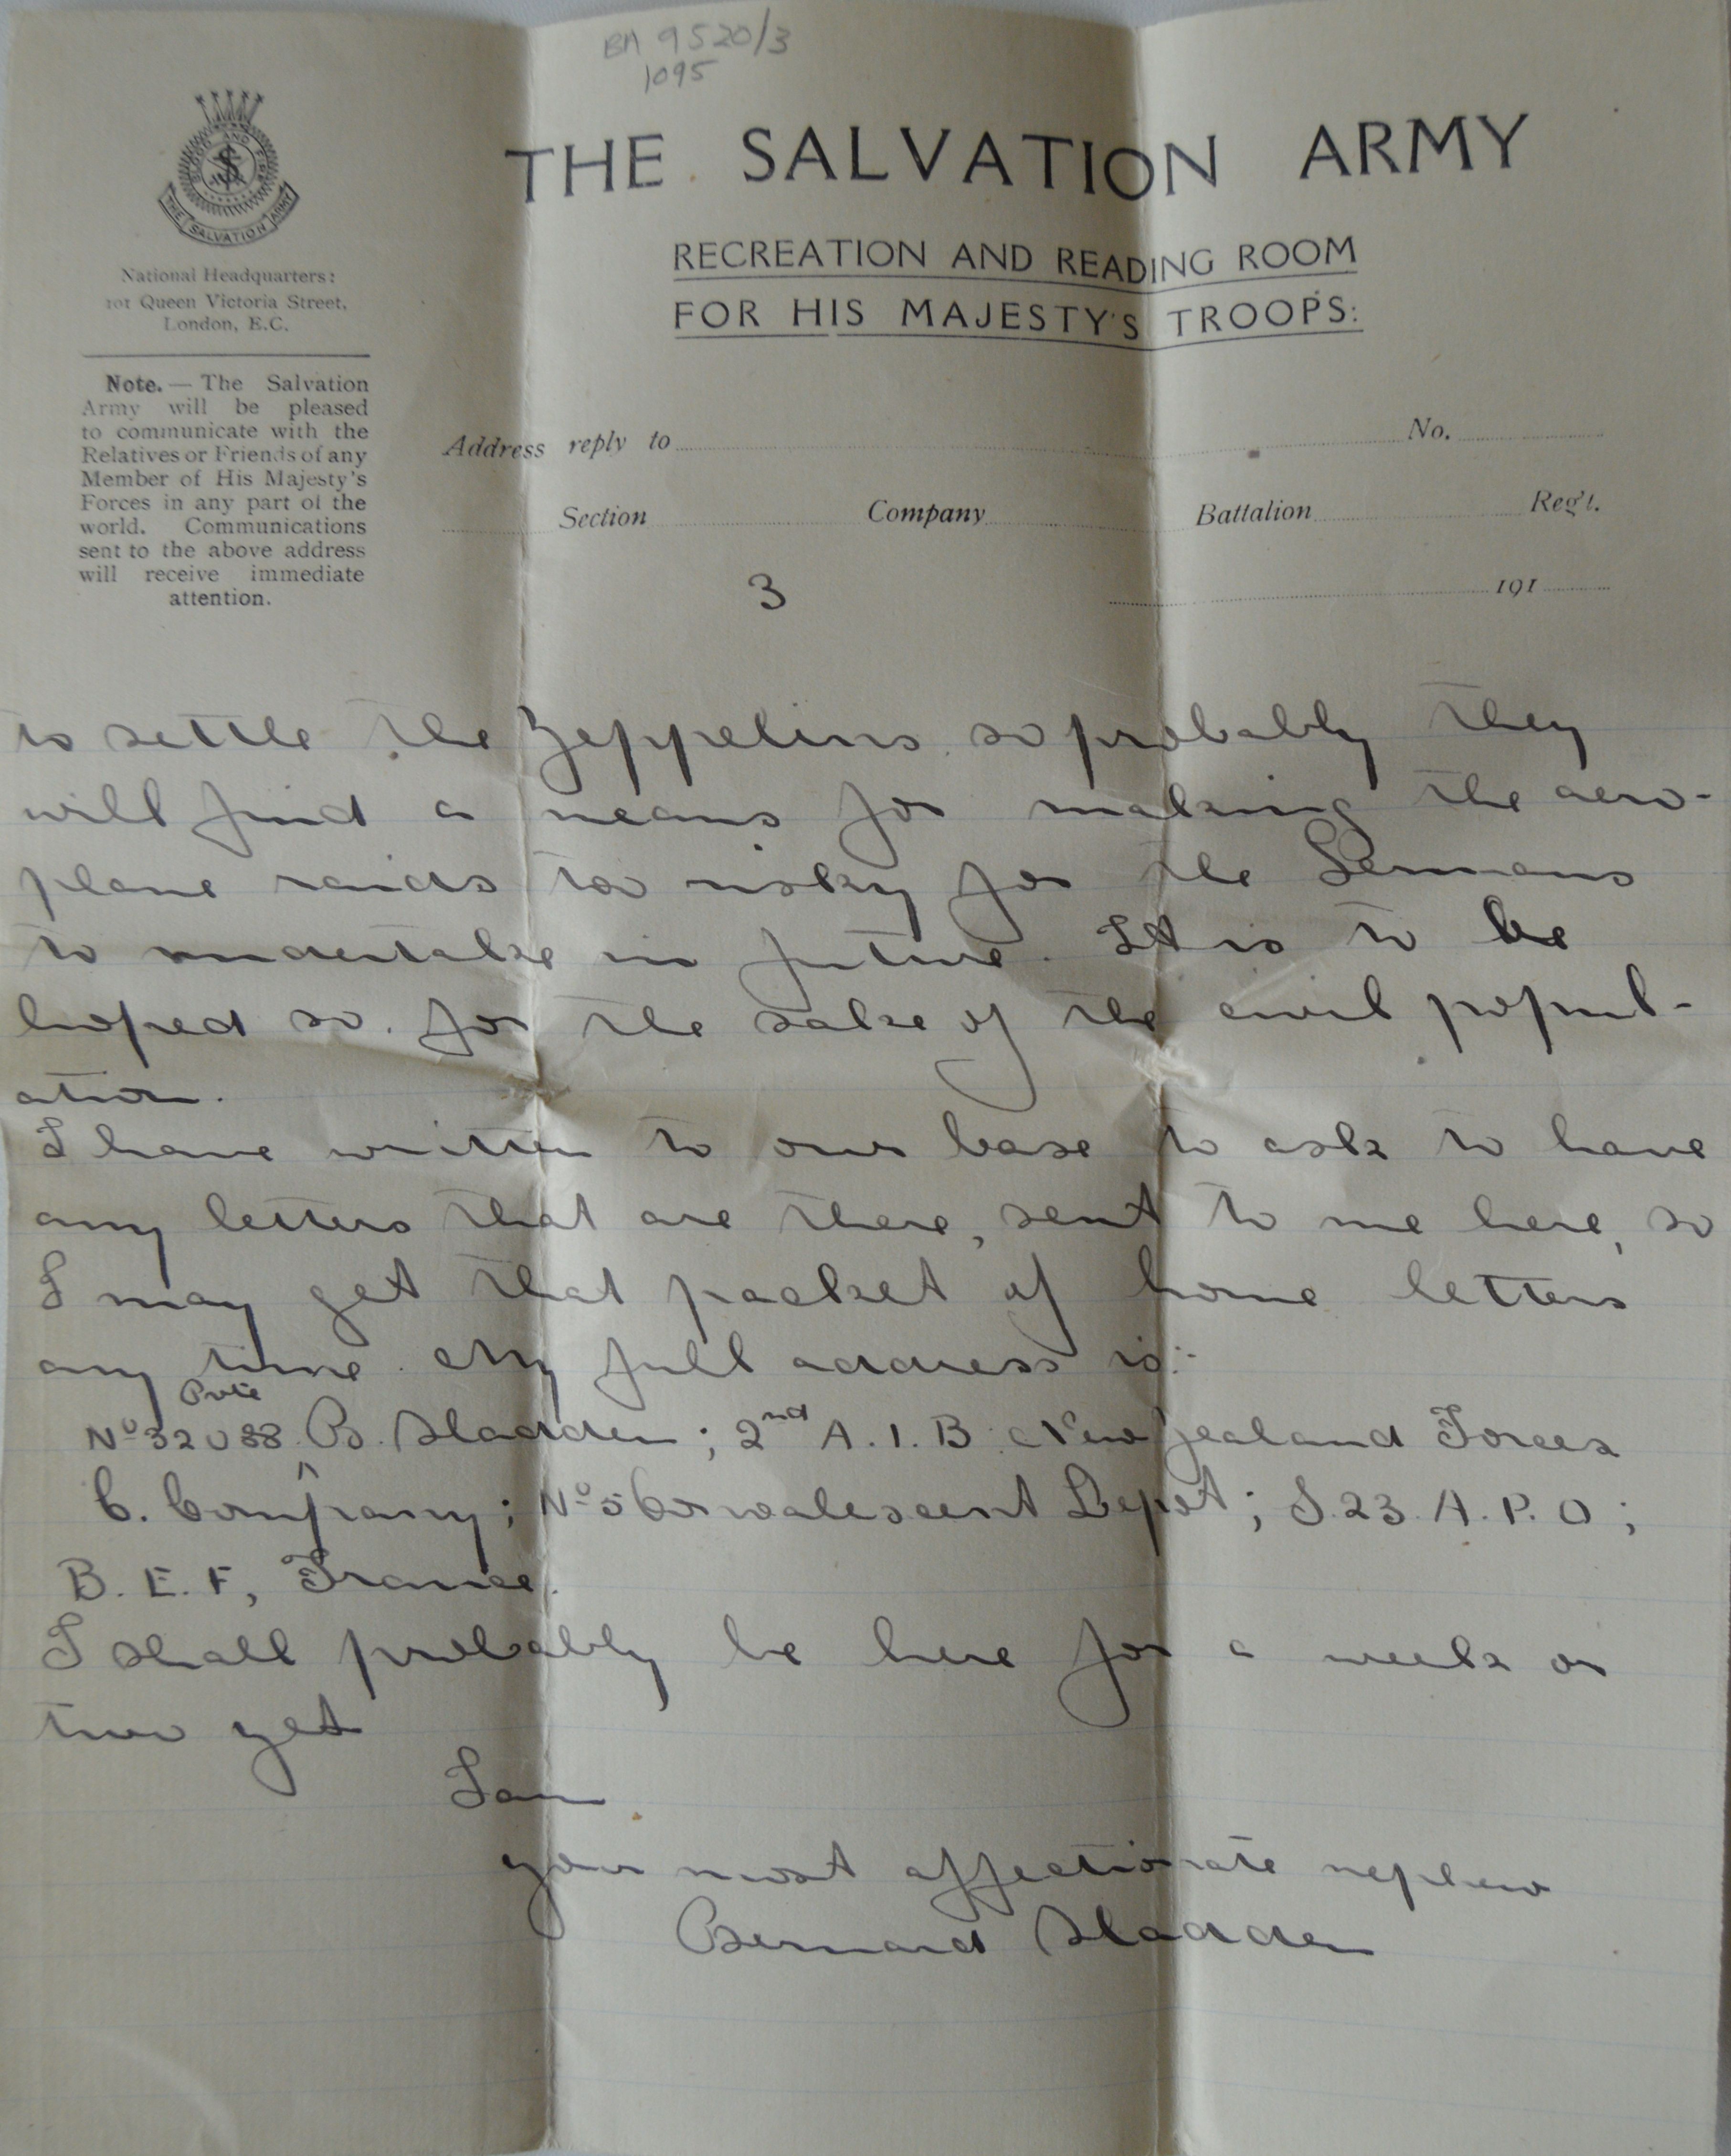 BA 9520/3
1095
BLOOD AND FIRE
THE SALVATION ARMY
National Headquarters:
101 Queen Victoria Street,
London, E.C.
Note. — The Salvation
Army will be pleased
to communicate with the
Relatives or Friends of any
Member of His Majesty's
Forces in any part of the
world. Communications
sent to the above address
will receive immediate
attention.
THE SALVATION ARMY
RECREATION AND READING ROOM
FOR HIS MAJESTY'S TROOPS:
Address reply to No.
Section Company Battalion Reg't.
191
3
to settle the Zeppelins so probably they
will find a means for making the aero-
plane raids too risky for the Germans
to undertake in future. It is to be
hoped so for the sake of the civil popul-
ation.
I have written to our base to ask to have
any letters that are there, sent to me here, so
I may get that packet of home letters
any time. My full address is:-
Nº 32088 Pvte B. Sladden; 2nd A.I.B. New Zealand Forces
C. Company; Nº 5 Convalescent Depot; S.23 A.P.O;
B.E.F, France.
I shall probably be here for a week or
two yet
I am
your most affectionate nephew
Bernard Sladden